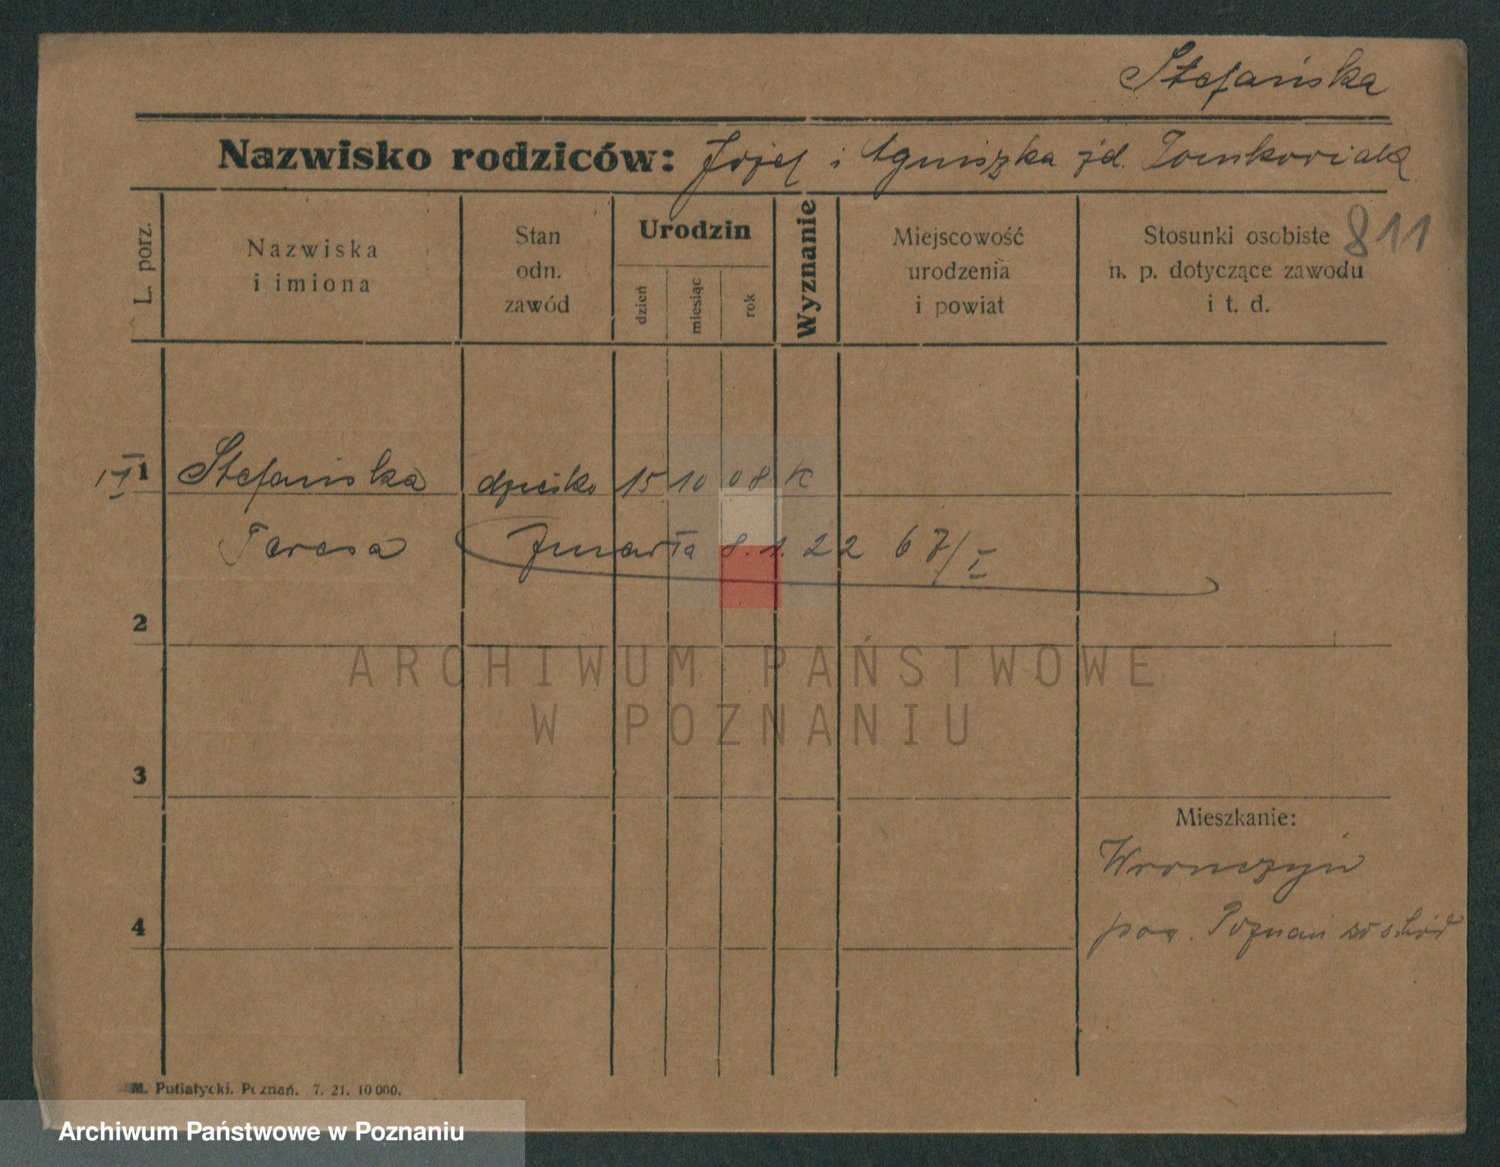 Stefańska
Nazwisko rodziców: Józef i Agniszka zd. Tomkowiak
811
L. porz.
Nazwiska
i imiona
Stan
odn.
zawód
Urodzin
dzień
miesiąc
rok
Wyznanie
Miejscowość
urodzenia
i powiat
Stosunki osobiste
n. p. dotyczące zawodu
i t. d.
1 Stefańska dziecko 15 10 08 K
Teresa Zmarła 8.1.22 67/I
2
ARCHIWUM PAŃSTWOWE
W POZNANIU
3
Mieszkanie:
Wronczyn
4
pow. Poznań wschód
M. Putiatycki. Poznań. 7. 21. 10000.
Archiwum Państwowe w Poznaniu